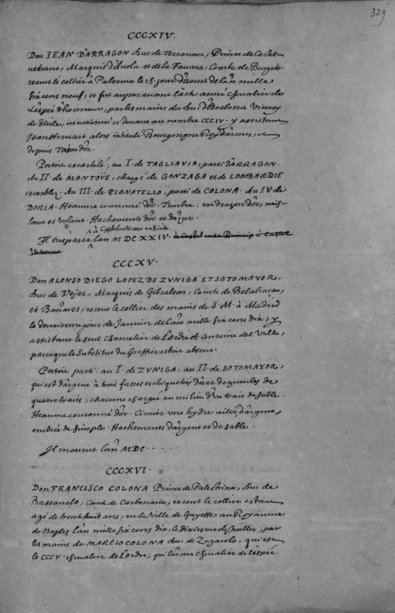 329
CCCXIV.
Don IEAN D'ARRAGON Duc de Terranova, Prince de Castel
vetrano, Marquis d'Avola et de la Favara, Comte de Burgeto
receut le collier à Palerme le 15 jour d'aoust de l'an mille
six cens neuf, et fut auparavant l'acte armé chevalier de
L'espée d'honneur, par les mains du Duc d'Escalona Viceroy
de Sicile, mentionné ci devant au nombre CCCIV. y assistant
Jean Hervart alors intitulé Bourgongne Roy d'armes, et
depuis Toison d'or.
Portoit escartelé, au I. de TAGLIAVIA, parti D'ARRAGON.
Au II. de MANTOVE, chargé de GONZAGA et de LOMBARDIE
escartelez. Au III. de PIGNATELLO, parti de COLONA. Au IV. de
DORIA. Heaume couronné d'or. Timbre: un dragon d'or, nais-
sant et volant. Hachements d'or et d'azur.
à Castelvetrano en Sicile
Il trespassa l'an MDCXXIV.
CCCXV.
Don ALONSO DIEGO LOPEZ DE ZUNIGA ET SOTOMAYOR,
Duc de Vejar, Marquis de Gibraleon, Comte de Belalcaçar,
et Bañares, receut le collier des mains de S. M. à Madrid
le deuxiesme jour de Janvier de l'an mille six cens dix; y
assistant le seul chancelier de l'ordre Antoine del Valle,
parceque le substitut du Greffier estoit absent.
Portoit parti: au I. de ZUNIGA: au II. de SOTOMAYOR,
qui est d'argent à trois fasces eschiquetées d'or et de gueules de
quatre traits; chacune chargée au milieu d'un trait de sable.
Heaume couronné d'or. Cimier une hydre ailée d'argent,
ombrée de sinople. Hachements d'argent et de sable.
Il mourut l'an MDC.....
CCCXVI.
Don FRANCISCO COLONA Prince de Palestrina, Duc de
Bassanelo, Comte de Carbonara, receut le collier estant
agé de trente huit ans, en la Ville de Gayette au Royaume
de Naples l'an mille six cens dix, le dixiesme de Juillet; par
les mains de MARTIO COLONA Duc de Zagarolo, qui est
le CCCV. chevalier de l'ordre; qui l'arma chevalier de l'espée